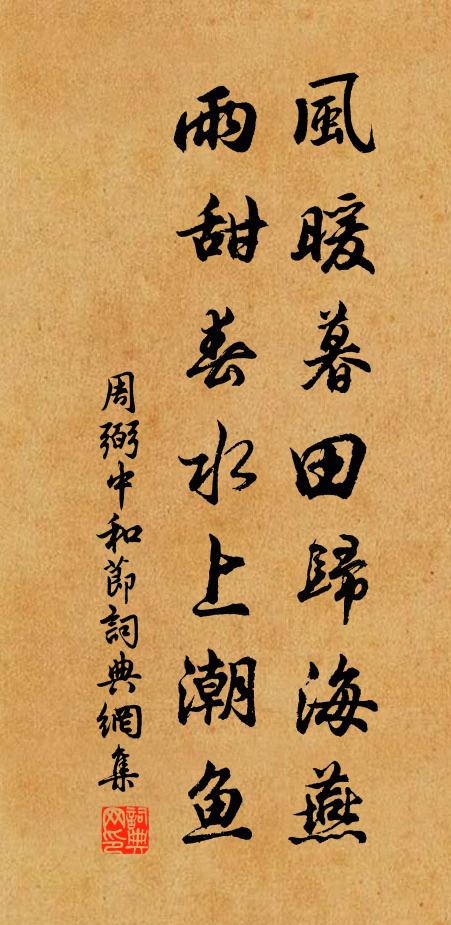 風暖暮田歸海燕
雨甜春水上潮鱼
周弼中和節詞典網集
詞典网印